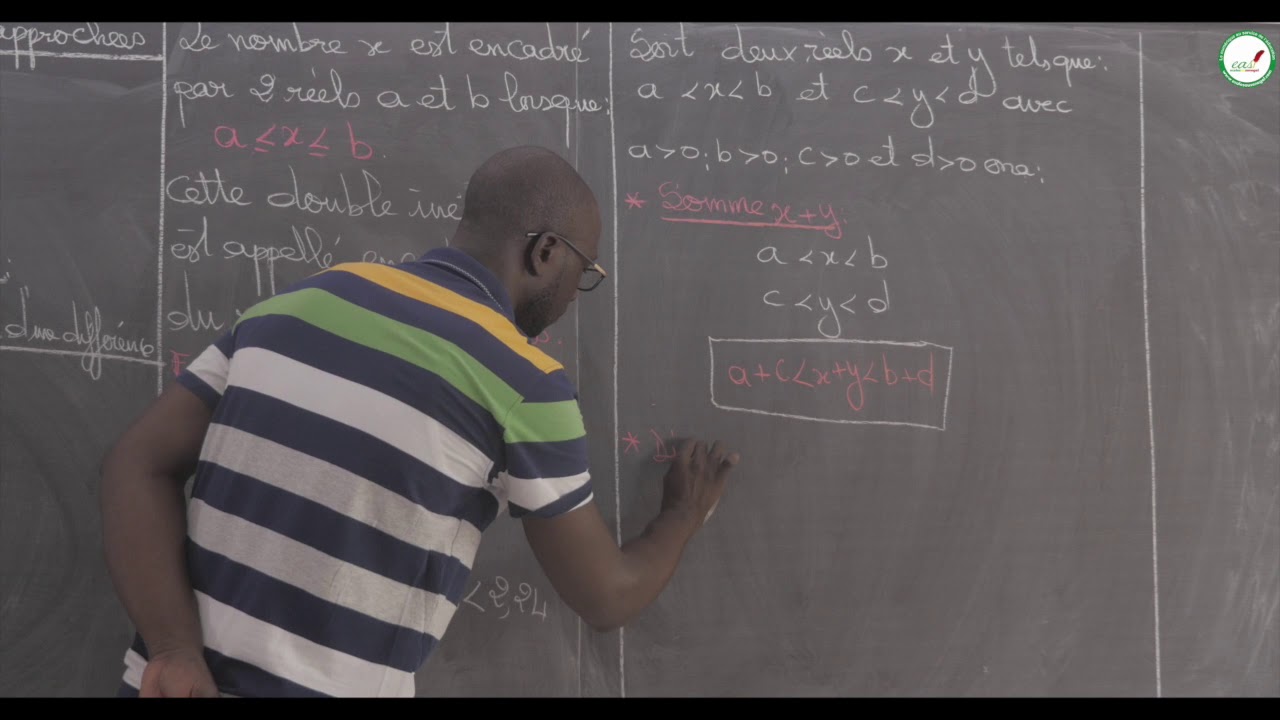 approchées
d'une différence
Le nombre x est encadré
par 2 réels a et b lorsque:
a ≤ x ≤ b.
Cette double iné
est appellé
du
< 2,24
Soit deux réels x et y tels que:
a < x < b et c < y < d avec
a > 0; b > 0; c > 0 et d > 0 on a:
* Somme x + y.
a < x < b
c < y < d
a + c < x + y < b + d
* D
eas